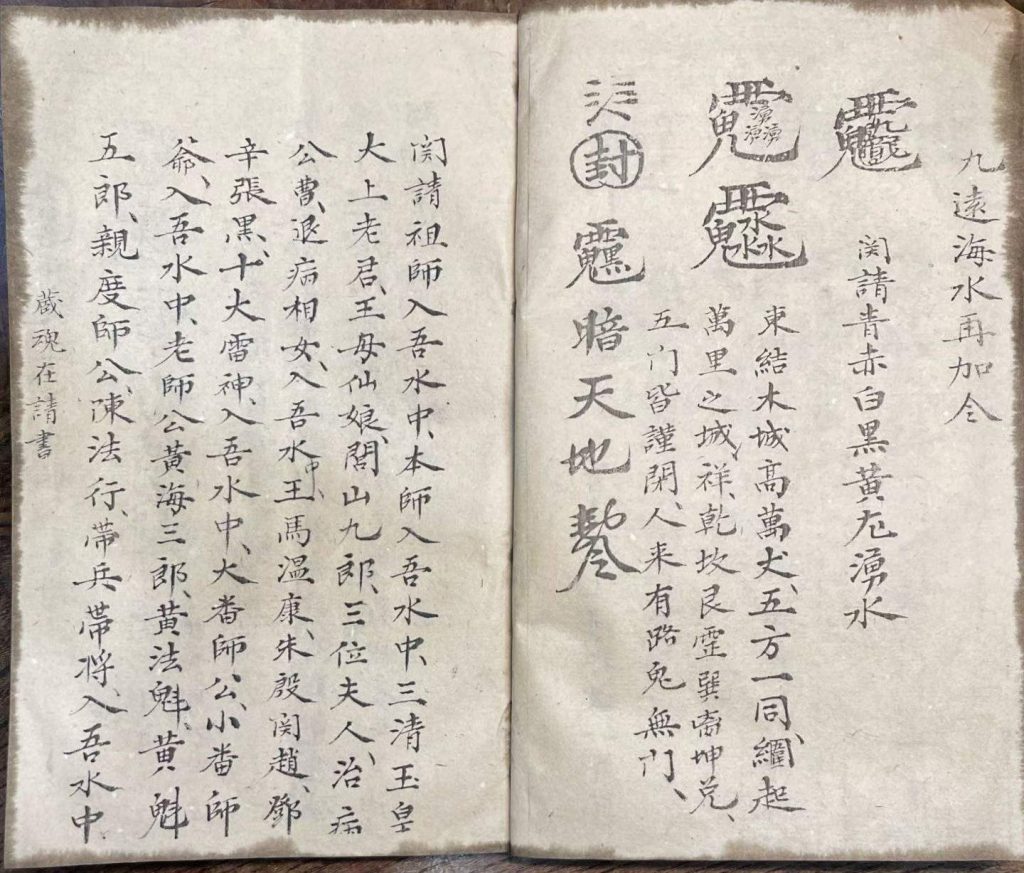 九遠海水再加仒
関請青赤白黑黄尨湧水
東結木城高萬丈、五方一同、綱起
萬里之城、祥、乾坎艮霊巽离坤兑、
五门皆謹閉、人来有路鬼無门、
封
暗天地
関請祖師入吾水中、本師入吾水中、三清玉皇
大上老君、王母仙娘、閭山九郎、三位夫人、治病
公曹、退病相女、入吾水中王馬温康、朱殷関趙、鄧
辛張黑、十大雷神、入吾水中、大番師公、小番師
爺、入吾水中、老師公黄海三郎、黄法魁、黄魁
五郎、親度師公、陳法行、帶兵帶将、入吾水中
蔵魂在請書